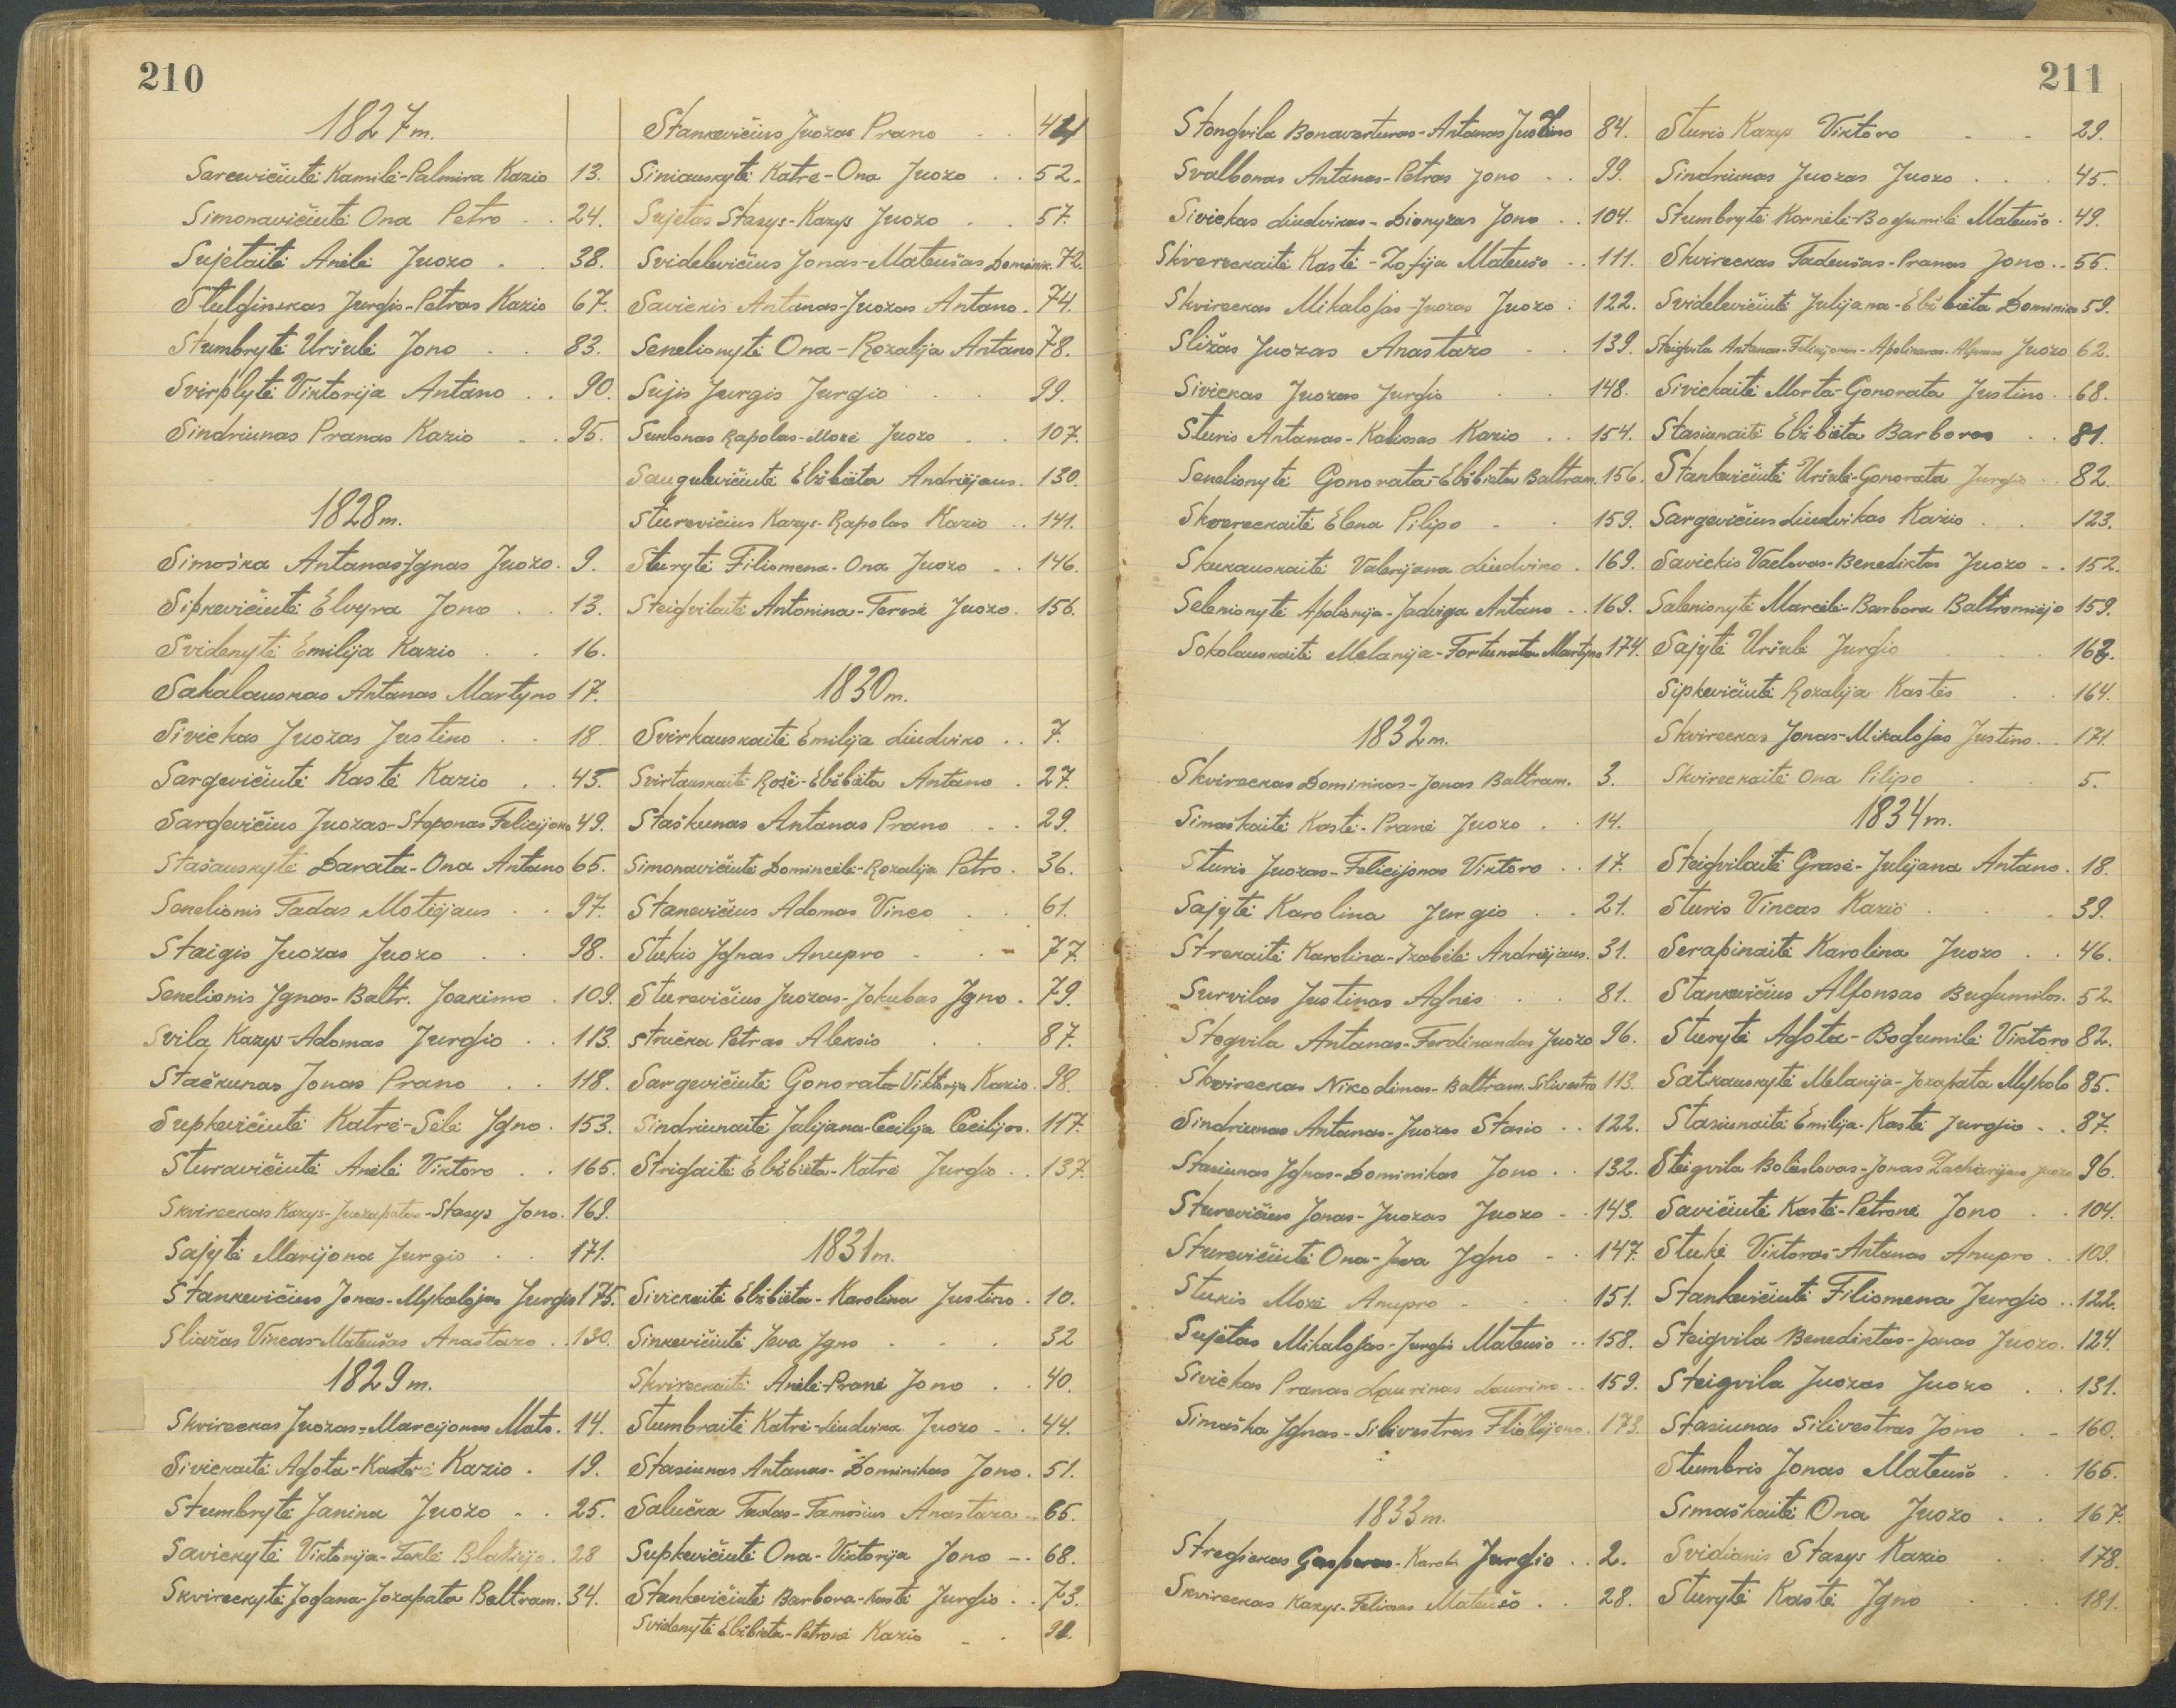 210
1827 m.
Sarcevičiutė Kamilė-Palmira Kazio 13.
Simonavičiutė Ona Petro . . 24.
Sujetaitė Anėlė Juozo . . 38.
Stulginskas Jurgis-Petras Kazio 67.
Stumbrytė Uršulė Jono . . 83.
Svirplytė Viktorija Antano . . 90.
Sindriunas Pranas Kazio . . 95.
1828 m.
Simoška Antanas Ignas Juozo. 9.
Sipkevičiutė Elvyra Jono . . 13.
Svidenytė Emilija Kazio . . 16.
Sakalauskas Antanas Martyno 17.
Sivickas Juozas Justino . . 18.
Sargevičiutė Kastė Kazio . . 45.
Sargevičius Juozas-Steponas Felicijono 49.
Stašauskytė Darata-Ona Antano 65.
Senelionis Tadas Motiejaus . . 97.
Staigis Juozas Juozo . . 98.
Senelionis Ignas-Baltr. Joakimo . 109.
Svila Kazys-Adomas Jurgio . . 113.
Stačkunas Jonas Prano . . 118.
Supkevičiutė Katrė-Salė Igno. 153.
Sturavičiutė Anėlė Viktoro . . 165.
Skvireckas Kazys-Juozapatas-Stasys Jono. 169.
Sajytė Marijona Jurgio . . 171.
Stankevičius Jonas-Mykalojas Jurgio 175.
Sližas Vincas-Mateušas Anastazo . . 130.
1829 m.
Skvireckas Juozas-Marcijonas Mato. 14.
Sivickaitė Agota-Kastė Kazio . 19.
Stumbrytė Janina Juozo . . 25.
Savickytė Viktorija-Teklė Blažiejo. 28
Skvireckytė Jogana-Jozapata Baltram. 34.
Stankevičius Juozas Prano . . 44
Siniauskytė Katrė-Ona Juozo . . 52.
Sujetas Stasys-Kazys Juozo . . 57.
Svidelevičius Jonas-Mateušas Dominik. 72.
Savickis Antanas-Juozas Antano. 74.
Senelionytė Ona-Rozalija Antano 78.
Sujis Jurgis Jurgio . . 99.
Suntonas Rapolas-Mozė Juozo . . 107.
Saugulevičiutė Elžbieta Andriejaus. 130.
Sturevičius Kazys-Rapolas Kazio . . 141.
Sturytė Filiomena-Ona Juozo . . 146.
Steigvilaitė Antonina-Teresė Juozo. 156.
1830 m.
Svirkauskaitė Emilija Liudviko . . 7.
Svirtauskaitė Rožė-Elžbieta Antano . 27.
Staškunas Antanas Prano . . 29.
Simonavičiutė Domincėlė-Rozalija Petro . 36.
Stanevičius Adomas Vinco . . 61.
Stukis Ignas Anupro . . - 77.
Sturevičius Juozas-Jokubas Igno . 79.
Stručka Petras Aleksio . . 87.
Sargevičiutė Gonorata-Viktorija Kazio. 98.
Sindriunaitė Julijana-Cecilija Cecilijos. 117.
Strigaitė Elžbieta-Katrė Jurgio . . 137.
1831 m.
Sivickaitė Elžbieta-Karolina Justino . 10.
Sinkevičiutė Jeva Igno . . . 32
Skvireckaitė Anėlė-Pranė Jono . . 40.
Stumbraitė Katrė-Liudvika Juozo . . 44.
Stasiunas Antanas-Dominikas Jono. 51.
Salučka Tadas-Tamošius Anastaza . . 65.
Supkevičiutė Ona-Viktorija Jono - . 68.
Stankevičiutė Barbora-Kastė Jurgio . . 73.
Svidenytė Elžbieta-Petronė Kazio . . 91.
211
Stongvila Bonaventuras-Antanas Justino 84.
Svalbonas Antanas-Petras Jono . . 99.
Sivickas Liudvikas-Dionyzas Jono . . 104.
Skvereckaitė Kastė-Zofija Mateušo . . 111.
Skvireckas Mikalojas-Juozas Juozo . 122.
Sližas Juozas Anastazo . . 139.
Sivickas Juozas Jurgio . . 148.
Sturis Antanas-Kaliksas Kazio . . 154.
Senelionytė Gonorata-Elžbieta Baltram. 156.
Skvereckaitė Elena Pilipo . . 159.
Skukauskaitė Valerijana Liudviko . 169.
Selenionytė Apolonija-Jadviga Antano . . 169.
Sokolauskaitė Melanija-Fortunata Martyno 174.
1832 m.
Skvireckas Dominikas-Jonas Baltram. 3.
Simaškaitė Kastė-Pranė Juozo . . 14.
Sturis Juozas-Felicijonas Viktoro . . 17.
Sajytė Karolina Jurgio . . 21.
Strekaitė Karolina-Izabėlė Andriejaus. 31.
Survilas Justinas Agnės . . 81.
Stegvila Antanas-Ferdinandas Juozo 96.
Skvireckas Nikodimas-Baltram. Silvestro 113.
Sindriunas Antanas-Juozas Stasio . . 122.
Stasiunas Ignas-Dominikas Jono . . 132.
Sturevičius Jonas-Juozas Juozo . . 143.
Sturevičiutė Ona-Jeva Igno . . 147.
Stukis Mozė Anupro . . . 151.
Sujetas Mikalojas-Jurgis Mateušo . . 158.
Sivickas Pranas Laurinas Laurino . . 159.
Simaška Ignas-Silivestras Filicijono. 173.
1833 m.
Stregickas Gasparas-Karol. Jurgio . . 2.
Skvireckas Kazys-Feliksas Mateušo . . 28.
Sturis Kazys Viktoro . . 29.
Sindriunas Juozas Juozo . . . 45.
Stumbrytė Kornėlė-Bogumilė Mateušo . 49.
Skvireckas Tadeušas-Pranas Jono . . 55.
Svidelevičiutė Julijana-Elžbieta Dominiko 59.
Steigvila Antanas-Felicijonas-Apolinaras-Alfonsas Juozo 62.
Sivickaitė Morta-Gonorata Justino . . 68.
Stasiunaitė Elžbieta Barboros . . 81.
Stankevičiutė Uršulė-Gonorata Jurgio . . 82.
Sargevičius Liudvikas Kazio . . 123.
Savickis Vaclovas-Benediktas Juozo . . 152.
Salenionytė Marcėlė-Barbora Baltromiejo 159.
Sajytė Uršulė Jurgio . . 162.
Sipkevičiutė Rozalija Kastės . . 164.
Skvireckas Jonas-Mikalojas Justino . . 171.
Skvireckaitė Ona Pilipo . . 5.
1834 m.
Steigvilaitė Grasė-Julijana Antano . 18.
Sturis Vincas Kazio . . . 39.
Serapinaitė Karolina Juozo . . 46.
Stankevičius Alfonsas Bugumilos. 52.
Sturytė Agota-Bogumilė Viktoro 82.
Satkauskytė Melanija-Jozapata Mykolo 85.
Stasiunaitė Emilija-Kastė Jurgio . . 87.
Steigvila Boleslovas-Jonas Zacharijas Juozo 96.
Savičiutė Kastė-Petronė Jono . . 104.
Stukė Viktoras-Antanas Anupro . . 109.
Stankevičiutė Filiomena Jurgio . . 122.
Steigvila Benediktas-Jonas Juozo. 124.
Steigvila Juozas Juozo . . 131.
Stasiunas Silivestras Jono . - 160.
Stumbris Jonas Mateušo . . 165.
Simaškaitė Ona Juozo . . 167.
Svidianis Stasys Kazio . . 178.
Sturytė Kastė Igno . . . 181.